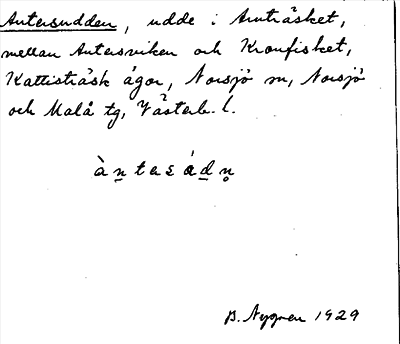 Antersudden, udde i Arnträsket,
mellan Antersviken och Kronfisket,
Kattisträsk ägor, Norsjö sn, Norsjö
och Malå tg, Västerb. l.
àn̲tɐsád̲n̥
B. Nygren 1929